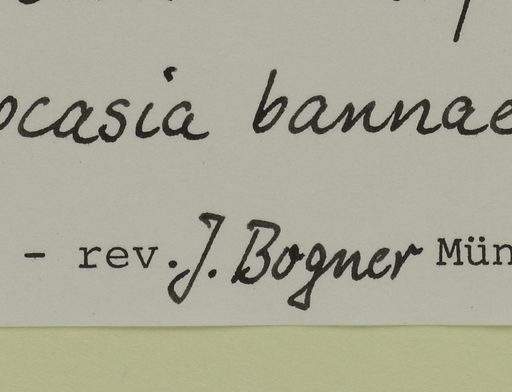 ocasia bannae
- rev. J. Bogner Mün